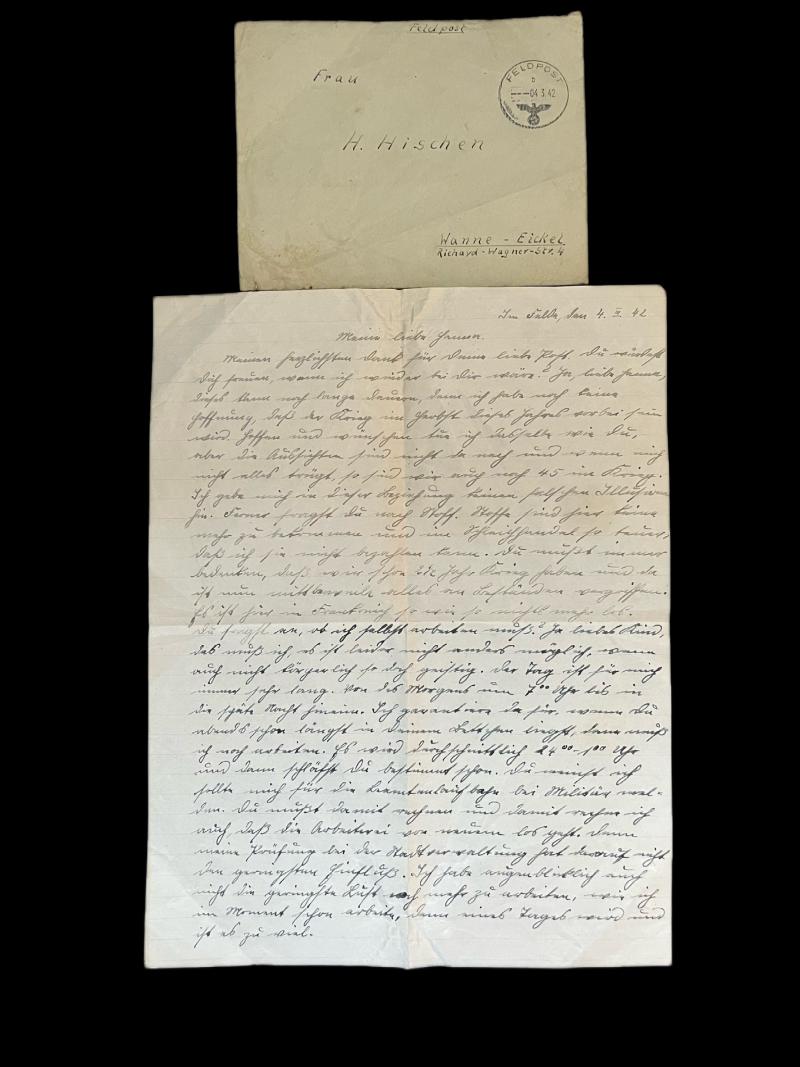 Feldpost
Frau
FELDPOST
b
---04.3.42
H. Hischen
Wanne - Eickel
Richard-Wagner-Str. 4
Im Felde, den 4. III. 42
Meine liebe Hanna.
Meinen herzlichsten Dank für Deine liebe Post. Du würdest
Dich freuen, wenn ich wieder bei Dir wäre? Ja, liebe Hanna,
dieses kann noch lange dauern, denn ich habe noch keine
Hoffnung, daß der Krieg im Herbst dieses Jahres vorbei sein
wird. Hoffen und wünschen tue ich dasselbe wie Du,
aber die Aussichten sind nicht da nach und wenn mich
nicht alles trügt, so sind wir auch noch 45 im Krieg.
Ich gebe mich in dieser Beziehung keinen falschen Illusionen
hin. Ferner fragst Du nach Stoff. Stoffe sind hier keine
mehr zu bekommen und im Schleichhandel so teuer,
daß ich sie nicht bezahlen kann. Du mußt immer
bedenken, daß wir schon 2½ Jahr Krieg haben und da
ist nun mittlerweile alles an Beständen vergriffen.
Es ist hier in Frankreich so wie so nichts mehr los.
Du fragst an, ob ich selbst arbeiten muß? Ja liebes Kind,
das muß ich, es ist leider nicht anders möglich, wenn
auch nicht körperlich so doch geistig. Der Tag ist für mich
immer sehr lang. Von des Morgens um 7⁰⁰ Uhr bis in
die späte Nacht hinein. Ich garantiere da für, wenn Du
abends schon längst in Deinem Bettchen liegst, dann muß
ich noch arbeiten. Es wird durchschnittlich 24⁰⁰-1⁰⁰ Uhr
und dann schläfst Du bestimmt schon. Du meinst ich
sollte mich für die Beamtenlaufbahn bei Militär mel-
den. Du mußt damit rechnen und damit rechne ich
auch, daß die Arbeiterei von neuem los geht. Denn
meine Prüfung bei der Stadtverwaltung hat darauf nicht
den geringsten Einfluß. Ich habe augenblicklich auch
nicht die geringste Lust noch mehr zu arbeiten, wie ich
im Moment schon arbeite, denn eines Tages wird und
ist es zu viel.